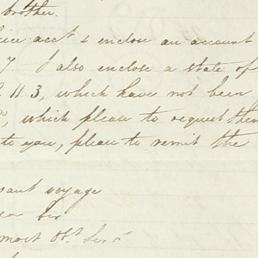 brother.
acct & enclose an account
7. I also enclose a state of
113, which have not been
which please to request them
to you, please to remit the
voyage
Sir
most Obt. Servt